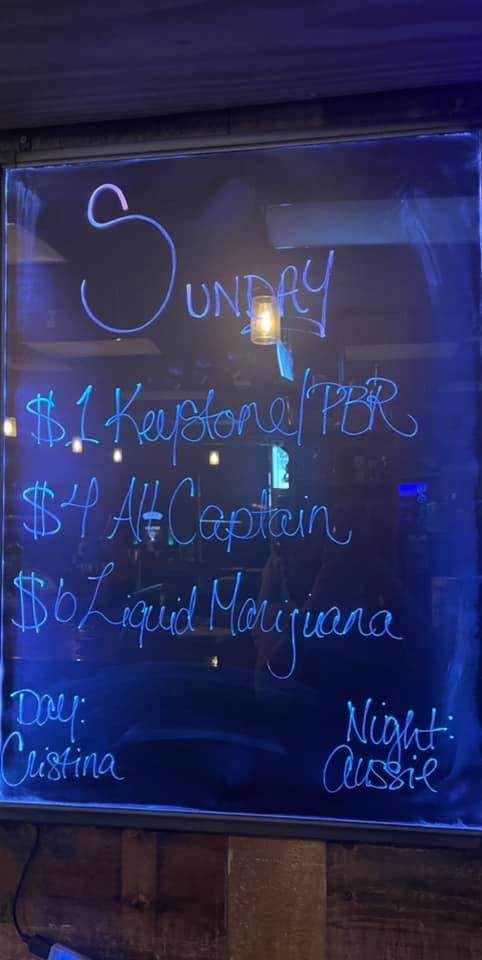 SUNDAY
$1 Keystone/PBR
$4 All Captain
$6 Liquid Marijuana
Day:
Cristina
Night:
Aussie